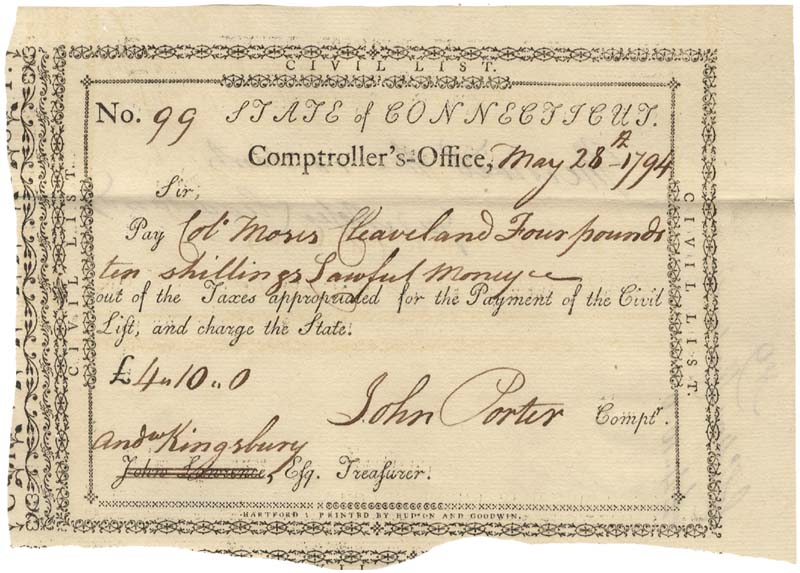 CIVIL LIST.
No. 99 STATE of CONNECTICUT.
Comptroller's-Office, May 28th 1794
Sir,
Pay Col Moses Cleaveland Four pounds
ten shillings Lawful Money
out of the Taxes appropriated for the Payment of the Civil
List, and charge the State.
£4 " 10 " 0
John Porter Comptr.
Andw Kingsbury
John Lawrence, Esq. Treasurer.
HARTFORD: PRINTED BY HUDSON AND GOODWIN.
CIVIL LIST.
CIVIL LIST.